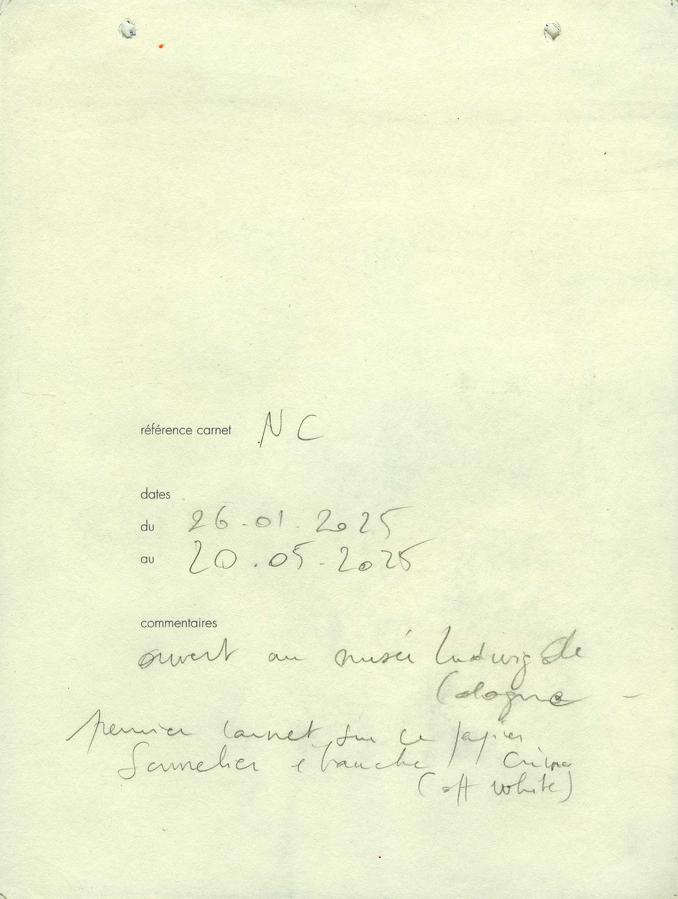 référence carnet NC
dates
du 26.01.2025
au 20.05.2025
commentaires
ouvert au musée Ludwig de
Cologne -
premier carnet sur ce papier
Sennelier ébauche
(off white)